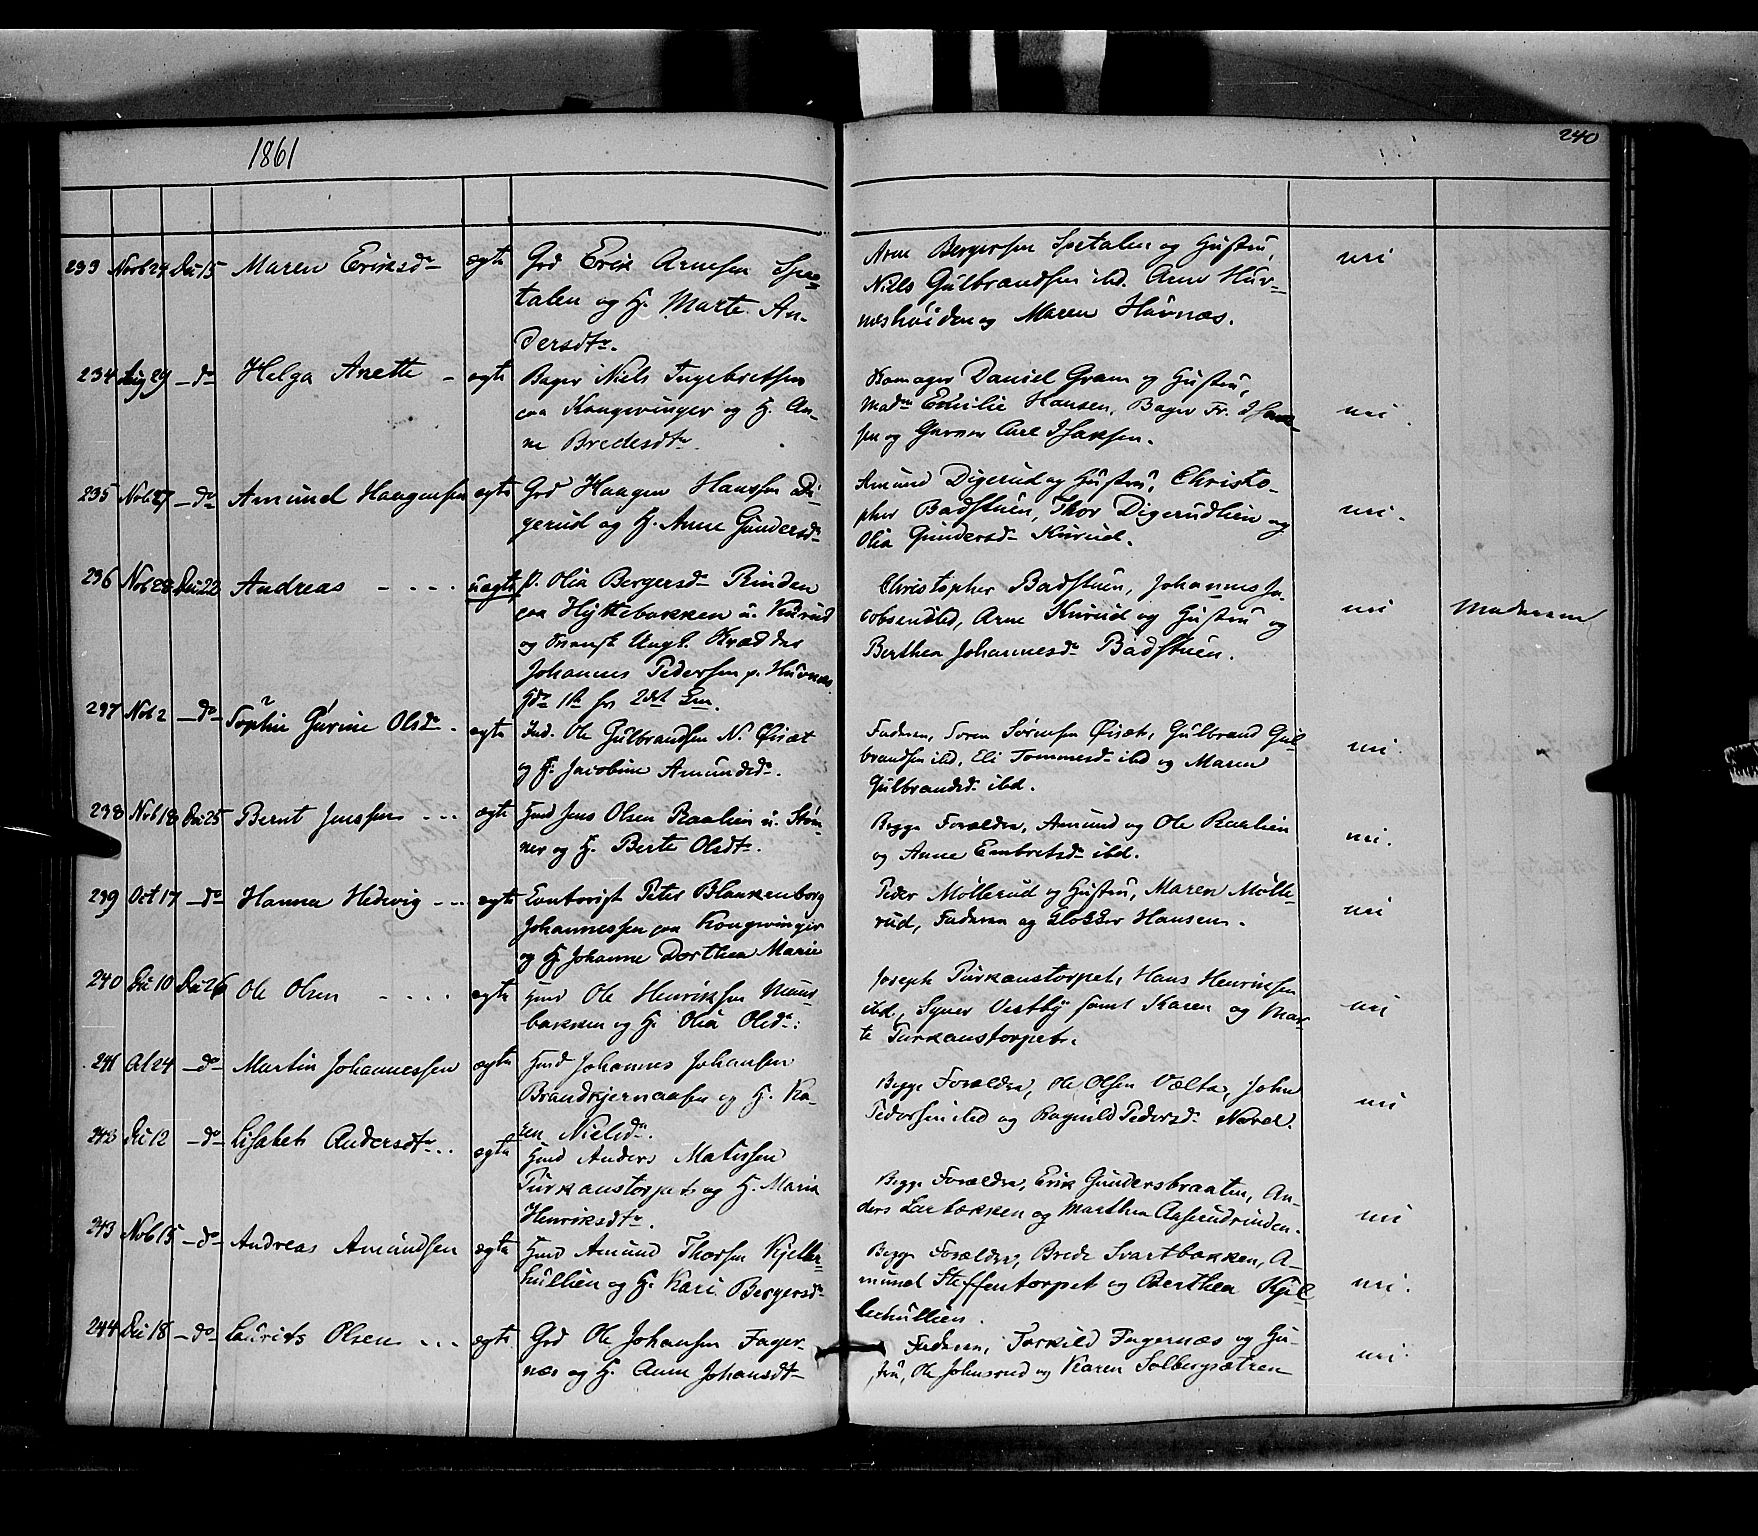 1861
240
233 Novb 24 Dec 15 Maren Eriksdr ægte Grd Erik Arnesen Spe=
talen og H. Marte An-
dersdtr.
Arne Bergersen Spetalen og Hustru,
Niels Gulbrandsen ibd. Arne Huv=
næs og Maren Huvnæs.
nei
234 Aug 29 - do Helga Anette - ægte Bager Niels Ingebretsen
paa Kongsvinger og H. An-
ne Bredesdtr.
Daniel Gram og Hustru,
Madm Emilie Hansen, Bager Fr. Isak-
sen og Garver Carl Isaksen.
nei
235 Nov 27 - do Amund Haagensen ægte Grd Haagen Hanssen Di
gerud og H. Anne Gundersdr
Amund Digerud og Hustru, Christo-
pher Badstuen, Thor Digerudlien og
Olia Gundersdr Kurud.
nei.
236 Nov 28 Dec 22 Andreas - - - - uægte P. Olia Bergersdr Rinden
paa Hyttebakken u. Kurud
og Svensk Ungk. Skrædder
Johannes Pedersen p. Huvnæs
Hds 1st hs 2det Lm.
Christopher Badstuen, Johannes Ja-
cobsen ibd, Arne Kurud og Hustru og
Berthea Johannesdr Badstuen.
nei
Moderen
237 Nov 2 - do Sophie Gurine Olsdr - ægte Ind. Ole Gulbrandsen N. Øiset
og H. Jacobine Amundsdr.
Faderen, Søren Sørensen Øiset, Gulbrand Gul
brandsen ibd, Eli Tommesdr ibd og Maren
Gulbrandsdr ibd.
nei.
238 Nov 18 Dec 25 Bernt Jenssen - - - ægte Hmd Jens Olsen Raalien u. Støm-
ner og H. Berte Olsdtr.
Begge Forældre, Amund og Ole Raalien
og Anne Embretsdr ibd.
nei.
239 Oct 17 - do Hanna Hedevig - - - ægte Contorist Peter Blankenborg
Johannessen paa Kongsvinger
og H. Johanne Dorthea Marie
Peder Møllerud og Hustru, Maren Mølle-
rud, Faderen og Klokker Hansen.
nei
240 Dec 10 Dec 26 Ole Olsen - - - - ægte Hmd Ole Henriksen Maur-
bakken og H. Olia Olsdr:
Joseph Purkanstorpet, Hans Henriksen
ibd, Syver Vestby samt Karen og Mar
te Purkanstorpet.
nei
241 Oct 24 - do Martin Johannessen ægte Hmd Johannes Johansen
Brandkjernaasen og H. Ka-
ren Nielsdr.
Begge Forældre, Ole Olsen Vælta, John
Pedersen ibd og Ragnild Pedersdr Norel.
nei
243 Dec 12 - do Lisabeth Andersdtr - - - ægte Hmd Anders Matissen
Purkanstorpet og H. Maria
Henriksdtr.
Begge Forældre, Erik Gundersbraaten, An-
ders Larbakken og Marthea Aaserudrinden.
nei
243 Nov 15 - do Andreas Amundsen ægte Hmd Amund Thorsen Kjeller=
hullien og H. Kari Bergersdr
Begge Forældre, Brede Svartbakken, A-
mund Steffentorpet og Berthea Kjel
lerhullien.
nei.
244 Dec 18 - do Laurits Olsen - - - ægte Grd Ole Johansen Fager-
næs og H. Anne Johansdtr
Faderen, Torkild Fagernæs og Hu-
stru, Ole Johnsrud og Karen Solbergsætren
nei.